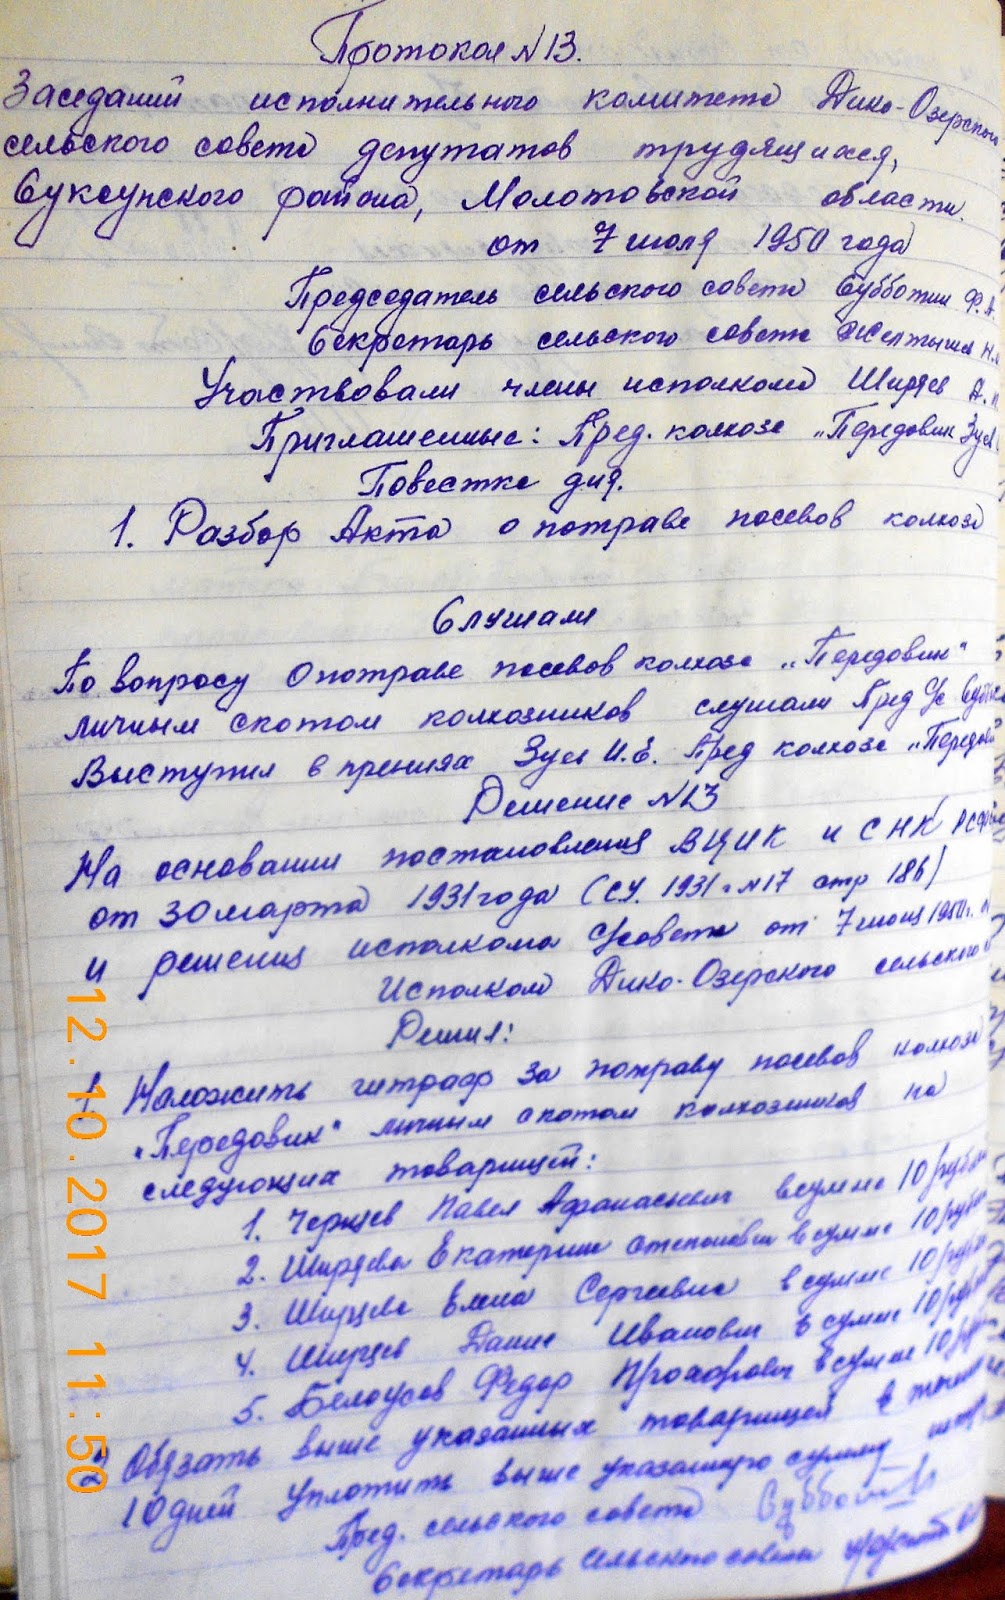 Протокол N 13.
Заседаний исполнительного комитета Дико-Озерского
сельского совета депутатов трудящихся,
Суксунского района, Молотовской области
от 7 июля 1950 года
Председатель сельского совета Субботин Ф. А.
Секретарь сельского совета Желтышев Н.
Участвовали члены исполкома Ширяев А.
Приглашенные: Пред. колхоза „Передовик Зуев
Повестка дня.
1. Разбор Акта о потраве посевов колхоза
Слушали
По вопросу О потраве посевов колхоза „Передовик"
личным скотом колхозников слушали Пред
Выступил в прениях Зуев И. Е. Пред колхоза „Передов
Решение N 13
На основании постановления ВЦИК и СНК РСФСР
от 30 марта 1931 года (СУ. 1931 г N 17 стр 186)
и решения исполкома С/совета от 7 июля 1950 г.
Исполком Дико-Озерского сельского
Решил:
1. Наложить штраф за потраву посевов колхоза
„Передовик" личным скотом колхозников на
следующих товарищей:
1. Павел Афанасьевич в сумме 10 рублей
2. Ширяева Екатерина Степановна в сумме 10 рублей
3. Ширяева Елена Сергеевна в сумме 10 рублей
4. Ширяев Данил Иванович в сумме 10 рублей
5. Белоусов Федор Прохорович в сумме 10 руб
2 Обязать выше указанных товарищей в течении
10 дней уплотить выше указанную сумму
Пред. сельского совета Субботин
Секретарь сельского совета
12.10.2017 11:50